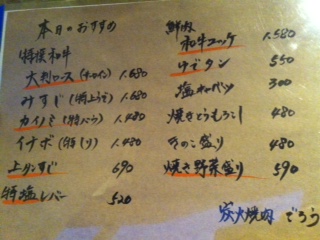 本日のおすすめ
特撰和牛
大判ロース(サーロイン) 1.680
みすじ(特上うで) 1.680
カイノミ(特バラ) 1.480
イチボ(特しり) 1.480
上リンすじ 690
特塩レバー 520
鮮肉
和牛ユッケ 1.580
ゆでタン 550
塩キャベツ 300
焼きとうもろこし 480
きのこ盛り 480
焼き野菜盛り 590
炭火焼肉 ごろう